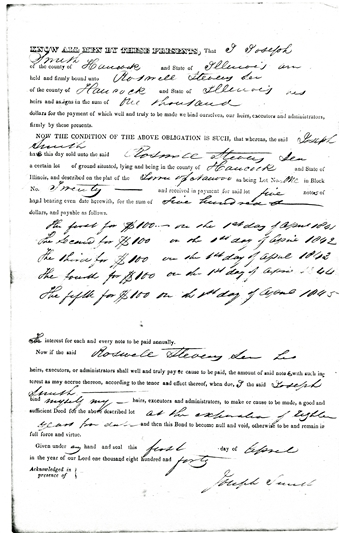 KNOW ALL MEN BY THESE PRESENTS, That I Joseph
Smith
of the county of Hancock and State of Illinois am
held and firmly bound unto Roswell Stevens Sen
of the county of Hancock and State of Illinois his
heirs and assigns in the sum of One thousand
dollars for the payment of which well and truly to be made we bind ourselves, our heirs, executors and administrators,
firmly by these presents.
NOW THE CONDITION OF THE ABOVE OBLIGATION IS SUCH, that whereas, the said Joseph
Smith
has this day sold unto the said Roswell Stevens Sen
a certain lot of ground situated, lying and being in the county of Hancock and State of
Illinois, and described on the plat of the Town of Nauvoo as being Lot No. One in Block
No. Twenty and received in payment for said lot five notes of
hand bearing even date herewith, for the sum of five hundred
dollars, and payable as follows.
The first for $100 on the 1st day of April 1841
The Second for $100 on the 1st day of April 1842
The third for $100 on the 1st day of April 1843
The fourth for $100 on the 1st day of April 44
The fifth for $100 on the 1st day of April 1845
The interest for each and every note to be paid annually.
Now if the said Roswell Stevens Sen his
heirs, executors, or administrators shall well and truly pay or cause to be paid, the amount of said notes with such in-
terest as may accrue thereon, according to the tenor and effect thereof, when due, I the said Joseph
Smith
bind myself my heirs, executors and administrators, to make or cause to be made, a good and
sufficient Deed for the above described lot at the expiration of
years from date and then this Bond to become null and void, otherwise to be and remain in
full force and virtue.
Given under my hand and seal this first day of April
in the year of our Lord one thousand eight hundred and forty
Acknowledged in
presence of
Joseph Smith